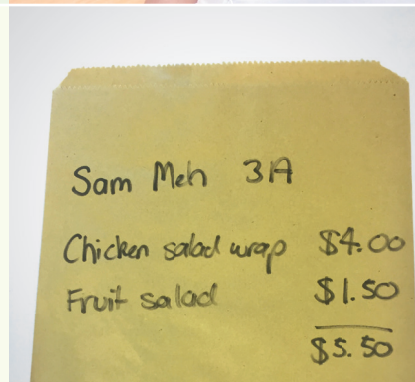 Sam Meh 3A
Chicken salad wrap $4.00
Fruit salad $1.50
$5.50